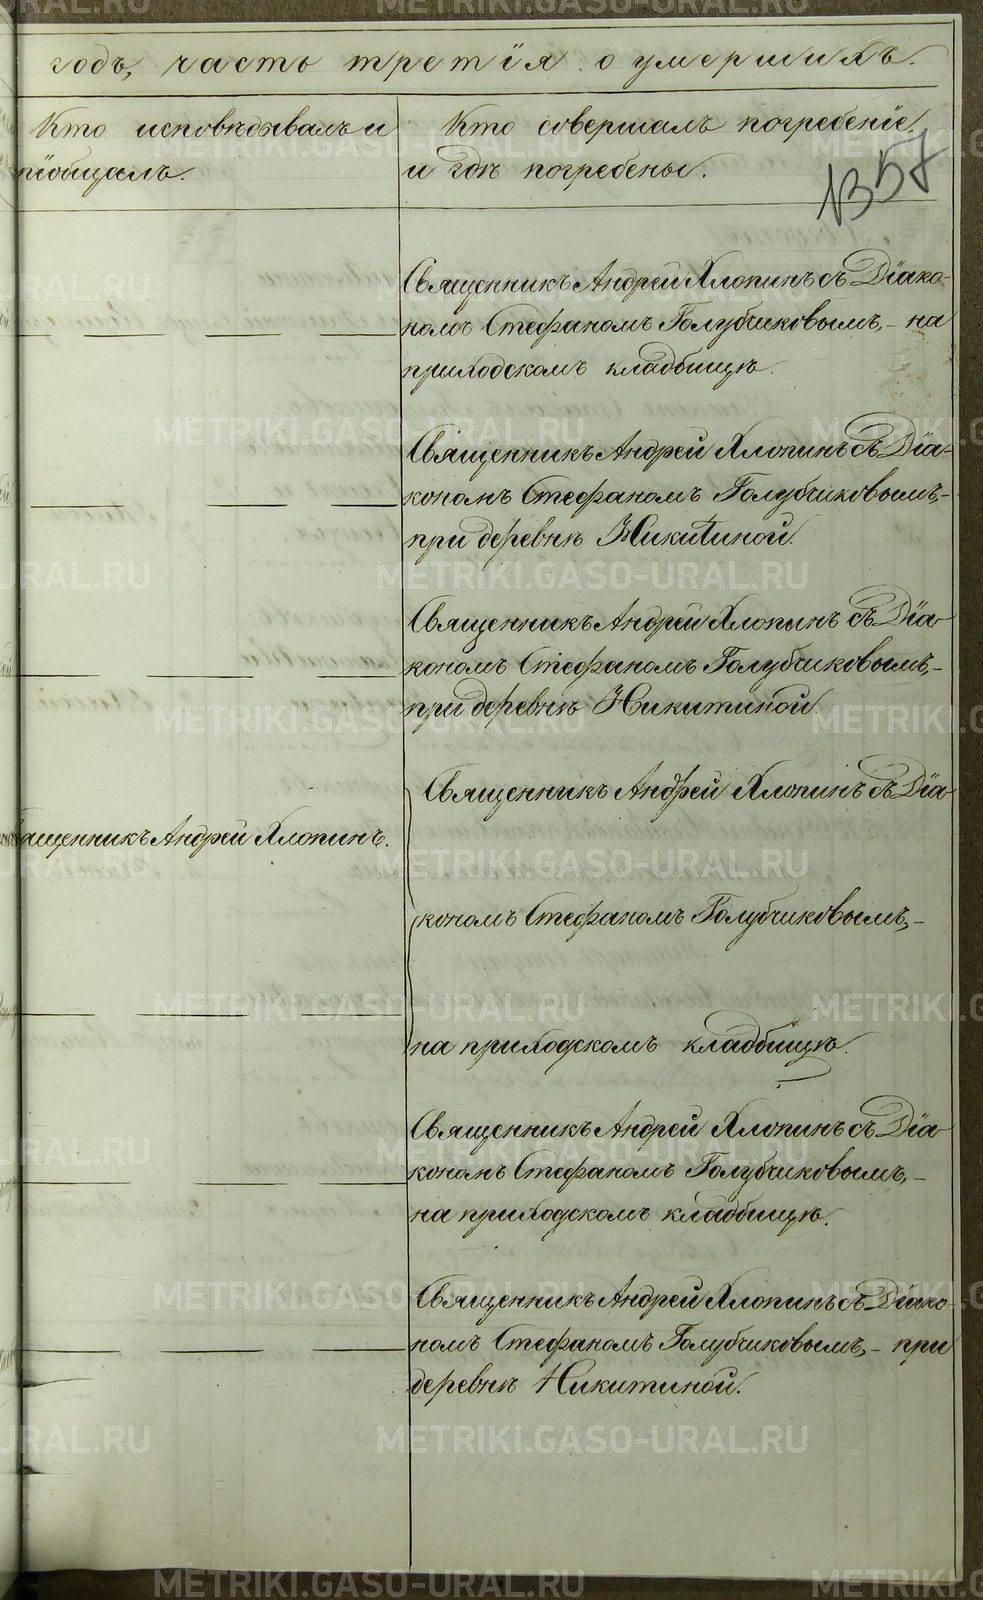 годъ, часть третія о умершихъ.
Кто исповѣдывалъ и
пріобщалъ.
Кто совершалъ погребеніе,
и гдѣ погребены.
Священникъ Андрей Хлопинъ съ Діако-
номъ Стефаномъ Голубчиковымъ, - на
приходскомъ кладбищѣ.
Священникъ Андрей Хлопинъ съ Діа-
кономъ Стефаномъ Голубчиковымъ, -
при деревнѣ Никитиной.
Священникъ Андрей Хлопинъ съ Діа-
кономъ Стефаномъ Голубчиковымъ, -
при деревнѣ Никитиной.
Священникъ Андрей Хлопинъ.
Священникъ Андрей Хлопинъ съ Діа-
кономъ Стефаномъ Голубчиковымъ, -
на приходскомъ кладбищѣ.
Священникъ Андрей Хлопинъ съ Діа-
кономъ Стефаномъ Голубчиковымъ, -
на приходскомъ кладбищѣ.
Священникъ Андрей Хлопинъ съ Діако-
номъ Стефаномъ Голубчиковымъ, - при
деревнѣ Никитиной.
METRIKI.GASO-URAL.RU